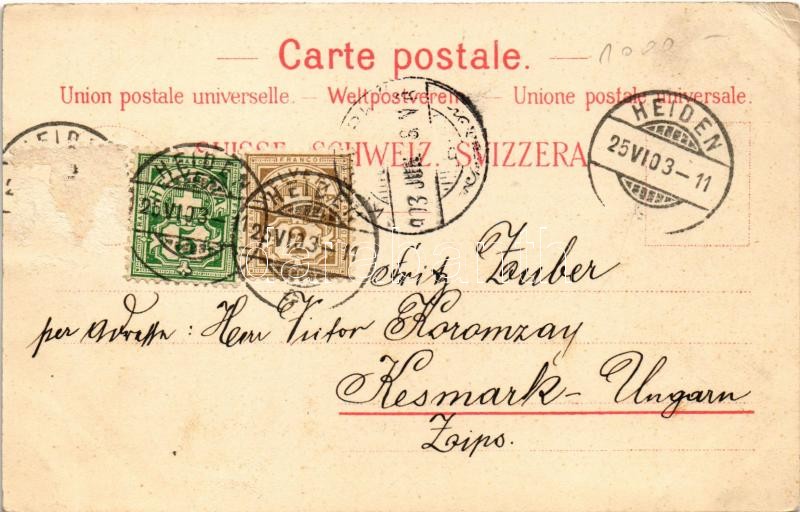 1000 -
Carte postale.
Union postale universelle. — Weltpostverein. — Unione postale universale.
SUISSE. SCHWEIZ. SVIZZERA.
HEIDEN
25 VI 03 - 11
HEIDEN
25 VI 03 -
HELVETIA
5
FRANCO
HELVETIA
2
HEIDEN
25 VI 03 - 11
903 JUN
Fritz Zuber
per Adresse: Herr Victor Koromzay
Kesmark - Ungarn
Zips.